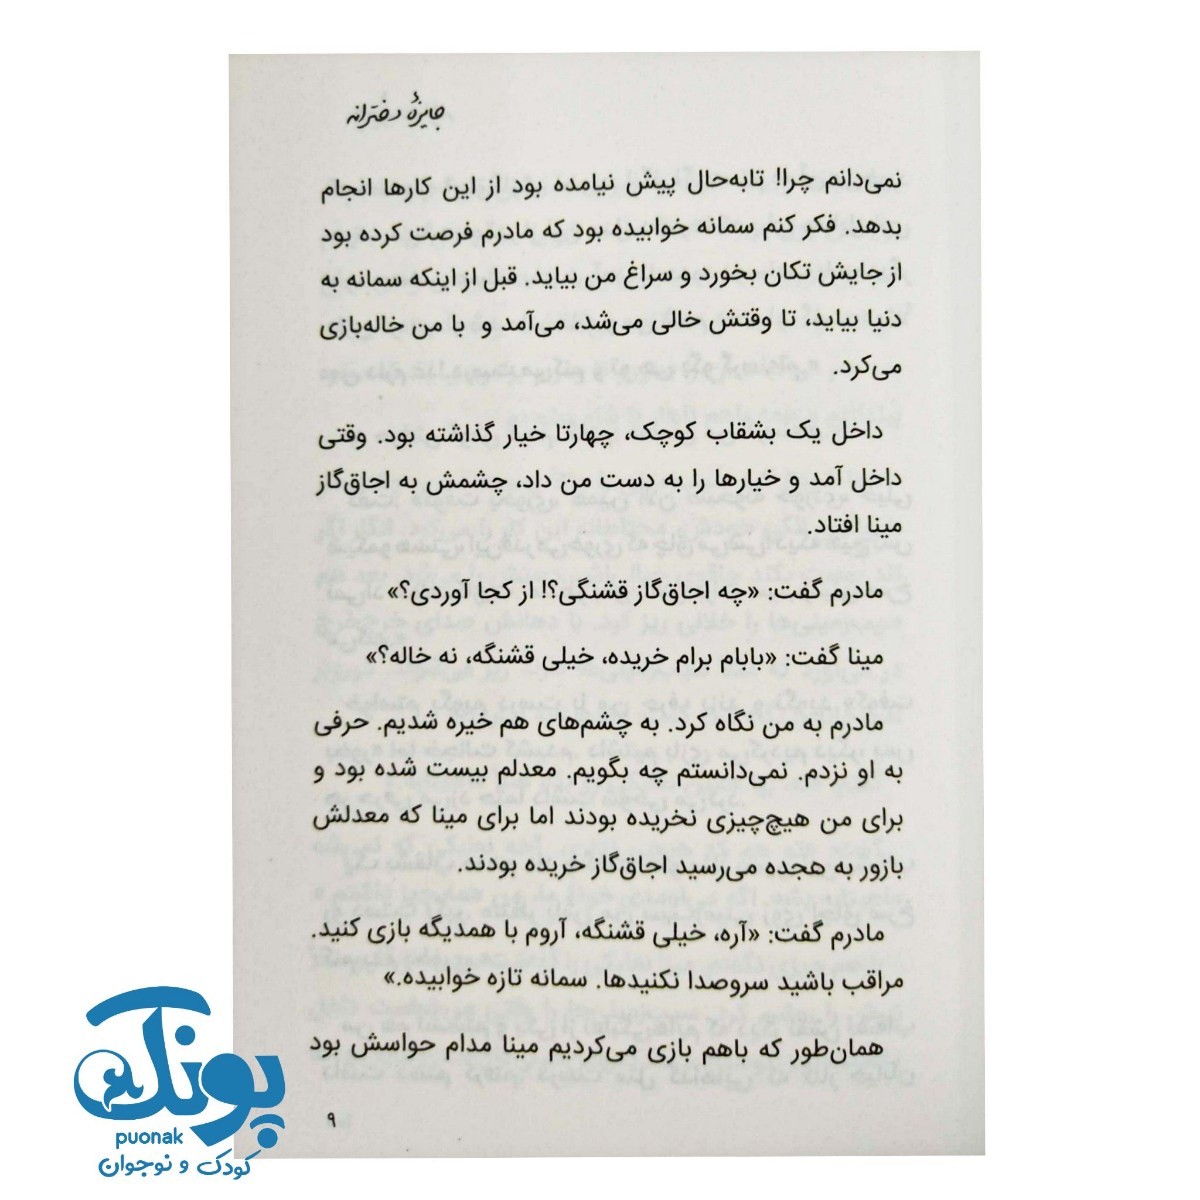 جایزهٔ دخترانه
نمی‌دانم چرا! تابه‌حال پیش نیامده بود از این کارها انجام
بدهد. فکر کنم سمانه خوابیده بود که مادرم فرصت کرده بود
از جایش تکان بخورد و سراغ من بیاید. قبل از اینکه سمانه به
دنیا بیاید، تا وقتش خالی می‌شد، می‌آمد و با من خاله‌بازی
می‌کرد.
داخل یک بشقاب کوچک، چهارتا خیار گذاشته بود. وقتی
داخل آمد و خیارها را به دست من داد، چشمش به اجاق‌گاز
مینا افتاد.
مادرم گفت: «چه اجاق‌گاز قشنگی؟! از کجا آوردی؟»
مینا گفت: «بابام برام خریده، خیلی قشنگه، نه خاله؟»
مادرم به من نگاه کرد. به چشم‌های هم خیره شدیم. حرفی
به او نزدم. نمی‌دانستم چه بگویم. معدلم بیست شده بود و
برای من هیچ‌چیزی نخریده بودند اما برای مینا که معدلش
بازور به هجده می‌رسید اجاق‌گاز خریده بودند.
مادرم گفت: «آره، خیلی قشنگه، آروم با همدیگه بازی کنید.
مراقب باشید سروصدا نکنیدها. سمانه تازه خوابیده.»
همان‌طور که باهم بازی می‌کردیم مینا مدام حواسش بود
۹
پونک
puonak
کودک و نوجوان